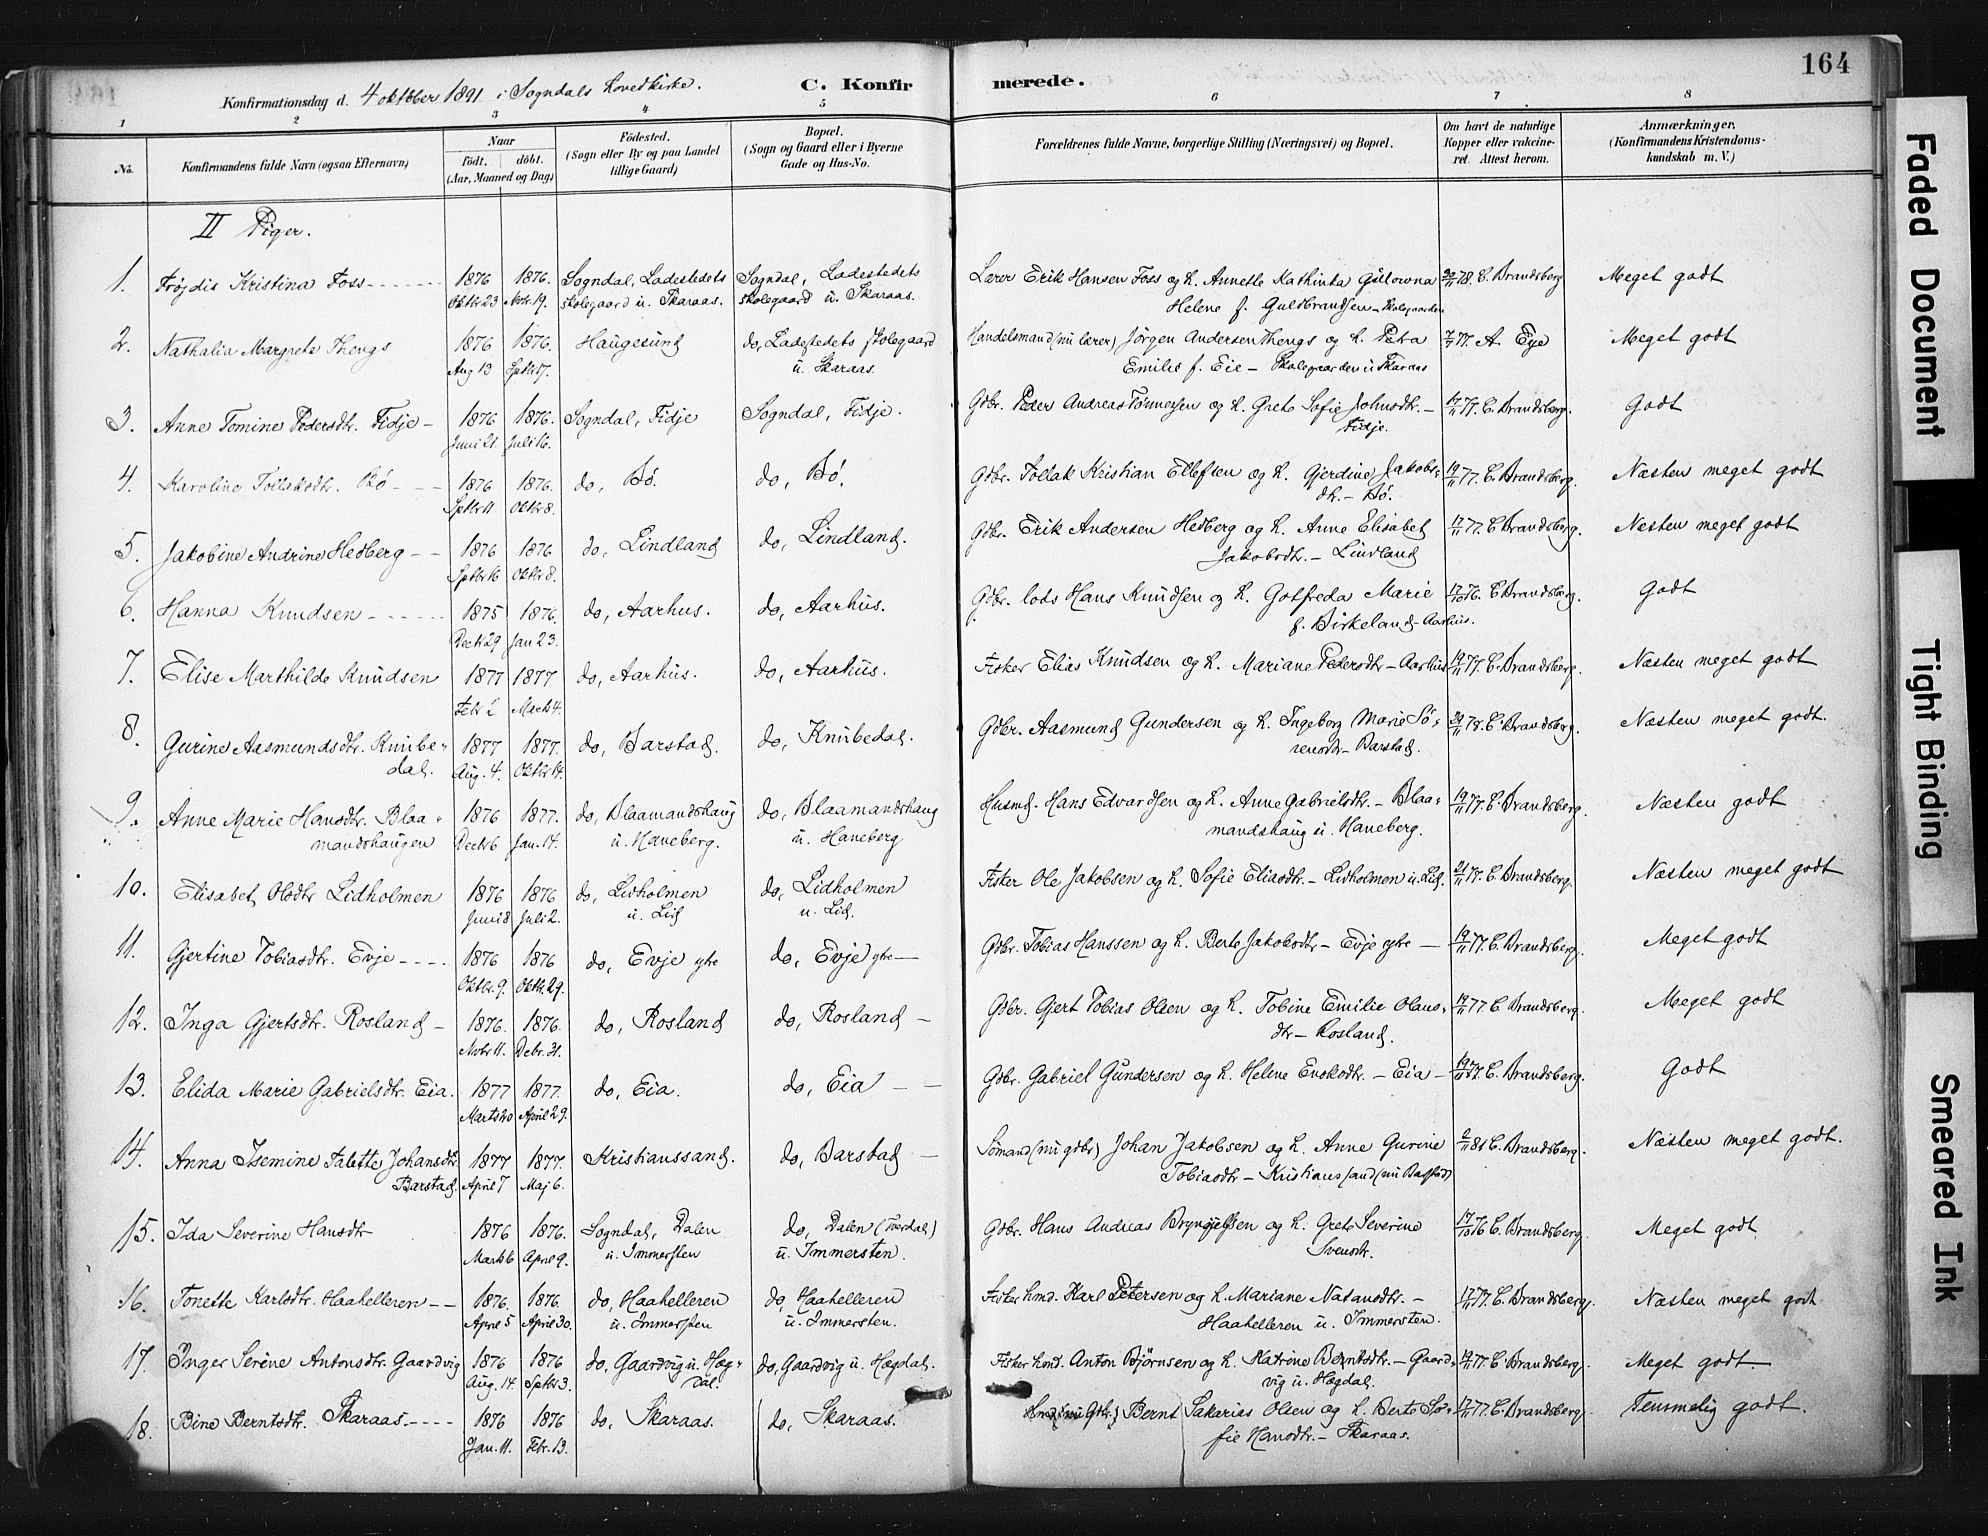 164
Konfirmationsdag d. 4 oktober 1891 i Sogndals Hovedkirke. C. Konfirmerede.
1 2 3 4 5 6 7 8
No. Konfirmandens fulde Navn (ogsaa Efternavn) Naar födt. döbt. (Aar, Maaned og Dag) Födested. (Sogn eller By og paa Landet tillige Gaard) Bopæl. (Sogn og Gaard eller i Byerne Gade og Hus-No. Forældrenes fulde Navne, borgerlige Stilling (Næringsvei) og Bopæl. Om havt de naturlige Kopper eller vakcineret. Attest herom. Anmærkninger. (Konfirmandens Kristendomskundskab m. V.)
II Piger.
1. Frøjdis Kristina Foss 1876 1876. Sogndal, Ladestedets Sogndal, Ladestedets Lærer Erik Hansen Foss og h. Annette Kathinka Gulowna 20/11 78. C. Brandsberg Meget godt
Oktbr 23 Novbr. 19. skolegaard u. Skaraas. skolegaard u. Skaraas. Helene f. Guldbrandsen - Skolegaarden
2. Nathalia Margrete Thengs 1876 1876. Haugesund do, Ladestedets skolegaard Handelsmand (nu lærer) Jørgen Andersen Thengs og h. Petra 77. A Eye Meget godt
Aug 13 Septbr 17. u. Skaraas. Emilie f. Eie - Skolegaarden u Skaraas
3. Anne Tomine Pedersdtr. Fidje 1876 1876. Sogndal, Fidje Sogndal, Fidje. Gdbr. Peder Andreas Tønnesen og h. Grete Sofie Johnsdtr. - 19/11 77. C. Brandsberg. Godt
Juni 21 Juli 16. Fidje.
4. Karoline Tollaksdtr. Bø 1876 1876. do, Bø. do, Bø. Gdbr. Tollak Kristian Ellefsen og h. Gjerdine Jakobs- 19/11 77. C. Brandsberg. Næsten meget godt
Septbr 11 Oktbr 8. dtr. - Bø.
5. Jakobine Andrine Hedberg 1876 1876 do, Lindland do, Lindland. Gdbr. Erik Andersen Hedberg og h. Anne Elisabet 17/11 77. C. Brandsberg. Næsten meget godt
Septbr 16 Oktbr 8. Jakobsdtr. - Lindland
6. Hanna Knudsen 1875 1876. do, Aarhus. do, Aarhus. Gdbr. lods Hans Knudsen og h. Gotfreda Marie 17/10 76. C. Brandsberg. Godt
Decbr 29 Jan 23. f. Birkeland - Aarhus.
7. Elise Marthilde Knudsen 1877 1877 do, Aarhus. do, Aarhus. Fisker Elias Knudsen og h. Mariane Pedersdtr - Aarhus 19/11 77. C. Brandsberg. Næsten meget godt
Febr 2 Marts 4.
8. Gurine Aasmundsdtr. Knube- 1877 1877. do, Barstad. do, Knubedal. Gdbr. Aasmund Gundersen og h. Ingeborg Marie Sø- 20/11 78. C. Brandsberg. Næsten meget godt.
dal. Aug. 4. Oktbr 14. rensdtr - Barstad.
9. Anne Marie Hansdtr. Blaa- 1876 1877. do, Blaamandshaug do, Blaamandshaug Husmd. Hans Edvardsen og h. Anne Gabrielsdtr. - Blaa- 19/11 77. C. Brandsberg. Næsten godt
mandshaugen Decbr 6 Jan. 14. u. Haneberg. u. Haneberg mandshaug u. Haneberg.
10. Elisabet Olsdtr Lidholmen 1876 1876 do, Lidholmen do, Lidholmen Fisker Ole Jakobsen og h. Sofie Eliasdtr. - Lidholmen u. Lid. 21/11 78. C. Brandsberg. Næsten meget godt
Juni 8 Juli 2. u. Lid u. Lid.
11. Gjertine Tobiasdtr. Evje 1876 1876 do, Evje ytre do, Evje ytre Gdbr. Tobias Hanssen og h. Berte Jakobsdtr - Evje ytre 19/11 77. C. Brandsberg. Meget godt
Oktbr. 9. Oktbr. 29.
12. Inga Gjertsdtr. Rosland 1876. 1876. do, Rosland do, Rosland Gdbr. Gjert Tobias Olsen og h. Tobine Emilie Olaus- 19/11 77. C. Brandsberg. Meget godt
Novbr 11. Debr. 31. dtr - Rosland.
13. Elida Marie Gabrielsdtr. Eia. 1877 1877. do, Eia. do, Eia Gdbr. Gabriel Gundersen og h. Helene Enoksdtr. - Eia 19/11 77. C. Brandsberg. Godt
Marts 20 April 29.
14. Anna Isemine Falette Johansdtr. 1877 1877. Kristianssand. do, Barstad Sømand (nu gdbr) Johan Jakobsen og h. Anne Gurine 2/11 81 C. Brandsberg. Næsten meget godt.
Barstad. April 7 Maj 6. Tobiasdtr - Kristianssand (nu Barstad)
15. Ida Severine Hansdtr 1876 1876. Sogndal, Dalen do, Dalen (Tverdal) Gdbr. Hans Andreas Bryngjelsen og h. Grete Severine 17/10 76 C. Brandsberg. Meget godt
Marts 6 April 9. u. Immersten u. Immersten. Svensdtr.
16. Tonette Karlsdtr. Haahelleren 1876. 1876. do, Haahelleren do, Haahelleren Fisker hmd. Karl Petersen og h. Mariane Natansdtr. - 17/11 77. C. Brandsberg. Næsten meget godt
April 5 April 30. u. Immersten u. Immersten. Haahelleren u. Immersten.
17. Inger Serene Antonsdtr. Gaardvig 1876 1876 do, Gaardvig u. Hæg- do, Gaardvig u. Hægdal. Fisker hmd. Anton Bjørnsen og h. Katrine Berntsdtr. - Gaard- 19/11 77. C. Brandsberg. Meget godt
Aug. 14. Septbr 3. dal. vig u. Hægdal.
18. Bine Berntsdtr. Skaraas 1876 1876 do, Skaraas. do, Skaraas. Hmd (nu Gdbr.) Bernt Sakarias Olsen og h. Berte So- 17/11 77. C. Brandsberg. Temmelig godt.
Jan. 11. Febr. 13. fie Hansdtr. - Skaraas.
Faded Document
Tight Binding
Smeared Ink